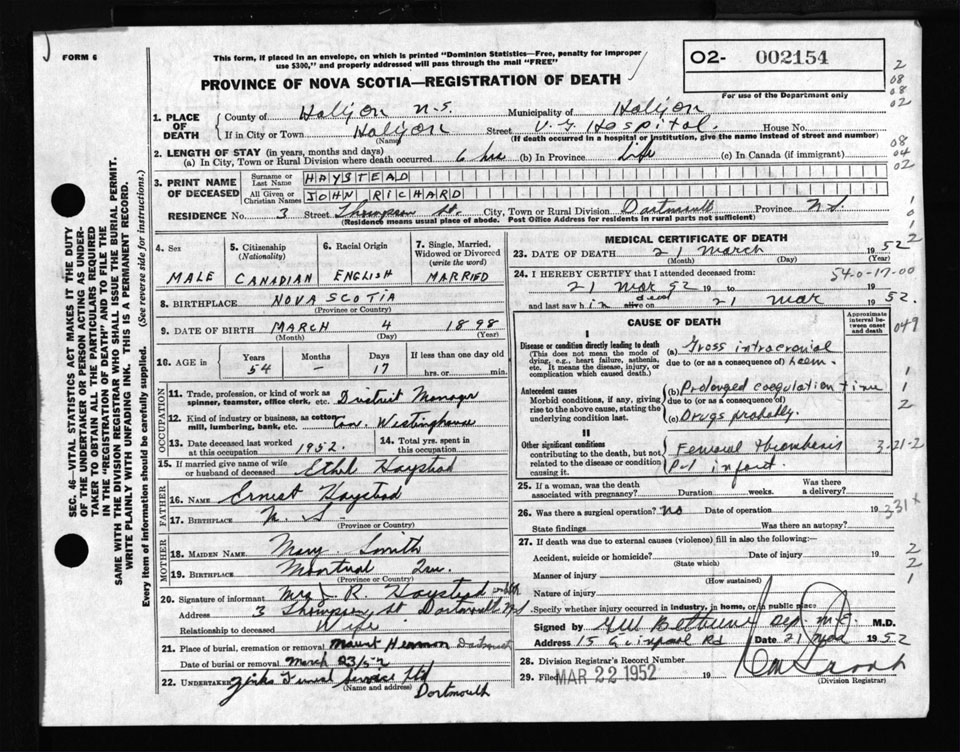 FORM 6
This form, if placed in an envelope, on which is printed "Dominion Statistics—Free, penalty for improper
use $300," and properly addressed will pass through the mail "FREE"
PROVINCE OF NOVA SCOTIA—REGISTRATION OF DEATH
02- 002154
For use of the Department only
1. PLACE OF DEATH
County of Halifax N.S. Municipality of Halifax
If in City or Town Halifax Street V. G. Hospital. House No.
(Name) (If death occurred in a hospital or institution, give the name instead of street and number)
2. LENGTH OF STAY (in years, months and days)
(a) In City, Town or Rural Division where death occurred 6 hrs (b) In Province Life (c) In Canada (if immigrant)
3. PRINT NAME OF DECEASED
Surname or Last Name HAYSTEAD
All Given or Christian Names JOHN RICHARD
RESIDENCE No. 3 Street Thompson St. City, Town or Rural Division Dartmouth Province N.S.
(Residence means usual place of abode. Post Office Address for residents in rural parts not sufficient)
4. Sex
MALE
5. Citizenship (Nationality)
CANADIAN
6. Racial Origin
ENGLISH
7. Single, Married, Widowed or Divorced (write the word)
MARRIED
8. BIRTHPLACE NOVA SCOTIA
(Province or Country)
9. DATE OF BIRTH MARCH 4 1898
(Month) (Day) (Year)
10. AGE in Years Months Days If less than one day old
54 – 17 hrs. or min.
OCCUPATION
11. Trade, profession, or kind of work as spinner, teamster, office clerk, etc. District Manager
12. Kind of industry or business, as cotton mill, lumbering, bank, etc. Can. Westinghouse
13. Date deceased last worked at this occupation 1952.
14. Total yrs. spent in this occupation
15. If married give name of wife or husband of deceased Ethel Haystead
FATHER
16. NAME Ernest Haystead
17. BIRTHPLACE N. S.
(Province or Country)
MOTHER
18. MAIDEN NAME Mary Smith
19. BIRTHPLACE Montreal Que.
(Province or Country)
20. Signature of informant Mrs J. R. Haystead
Address 3 Thompson St Dartmouth NS
Relationship to deceased Wife
21. Place of burial, cremation or removal Mount Hermon Dartmouth
Date of burial or removal March 23/52
22. UNDERTAKER Funeral Service Ltd
(Name and address) Dartmouth
MEDICAL CERTIFICATE OF DEATH
23. DATE OF DEATH 21 March 1952
(Month) (Day) (Year)
24. I HEREBY CERTIFY that I attended deceased from: 540-17-00
21 Mar 52 19 to 19
and last saw h im alive on dead 21 Mar 1952.
CAUSE OF DEATH
Approximate interval between onset and death
I
Disease or condition directly leading to death (a) Gross intracranial
(This does not mean the mode of dying, e.g., heart failure, asthenia, etc. It means the disease, injury, or complication which caused death.)
due to (or as a consequence of) haem.
Antecedent causes (b) Prolonged coagulation time
Morbid conditions, if any, giving rise to the above cause, stating the underlying condition last.
due to (or as a consequence of)
(c) Drugs probably.
II
Other significant conditions Femoral thrombosis
contributing to the death, but not related to the disease or condition causing it. infarct.
25. If a woman, was the death associated with pregnancy? Duration weeks. Was there a delivery?
26. Was there a surgical operation? no Date of operation 19 331x
State findings Was there an autopsy?
27. If death was due to external causes (violence) fill in also the following:
Accident, suicide or homicide? Date of injury 19
(State which)
Manner of injury
(How sustained)
Nature of injury
Specify whether injury occurred in industry, in home, or in public place
Signed by Dep. M.E. M.D.
Address 15 Rd Date 21 Mar 1952
28. Division Registrar's Record Number
29. Filed MAR 22 1952 19
(Division Registrar)
SEC. 46—VITAL STATISTICS ACT MAKES IT THE DUTY
OF THE UNDERTAKER OR PERSON ACTING AS UNDER-
TAKER TO OBTAIN ALL THE PARTICULARS REQUIRED
IN THE "REGISTRATION OF DEATH" AND TO FILE THE
SAME WITH THE DIVISION REGISTRAR WHO SHALL ISSUE THE BURIAL PERMIT.
WRITE PLAINLY WITH UNFADING INK. THIS IS A PERMANENT RECORD.
Every item of information should be carefully supplied. (See reverse side for instructions.)
2
08
08
02
08
04
02
1
0
1
2
049
1
1
2
3-21-2
2
2
1